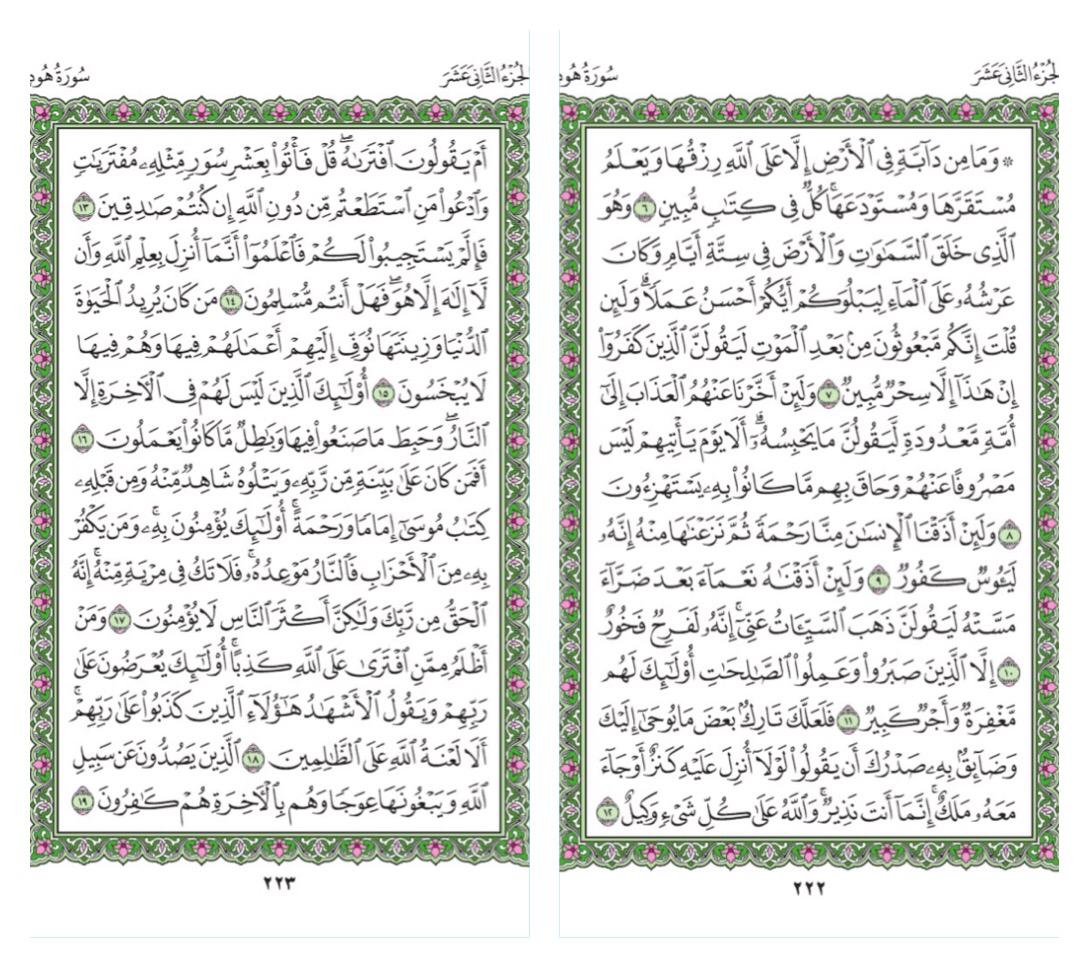 الجزء الثاني عشر
سورة هود
۞ وَمَا مِن دَآبَّةٖ فِي ٱلۡأَرۡضِ إِلَّا عَلَى ٱللَّهِ رِزۡقُهَا وَيَعۡلَمُ
مُسۡتَقَرَّهَا وَمُسۡتَوۡدَعَهَاۚ كُلّٞ فِي كِتَٰبٖ مُّبِينٖ ٦ وَهُوَ
ٱلَّذِي خَلَقَ ٱلسَّمَٰوَٰتِ وَٱلۡأَرۡضَ فِي سِتَّةِ أَيَّامٖ وَكَانَ
عَرۡشُهُۥ عَلَى ٱلۡمَآءِ لِيَبۡلُوَكُمۡ أَيُّكُمۡ أَحۡسَنُ عَمَلٗاۗ وَلَئِن
قُلۡتَ إِنَّكُم مَّبۡعُوثُونَ مِنۢ بَعۡدِ ٱلۡمَوۡتِ لَيَقُولَنَّ ٱلَّذِينَ كَفَرُوٓاْ
إِنۡ هَٰذَآ إِلَّا سِحۡرٞ مُّبِينٞ ٧ وَلَئِنۡ أَخَّرۡنَا عَنۡهُمُ ٱلۡعَذَابَ إِلَىٰٓ
أُمَّةٖ مَّعۡدُودَةٖ لَّيَقُولُنَّ مَا يَحۡبِسُهُۥٓۗ أَلَا يَوۡمَ يَأۡتِيهِمۡ لَيۡسَ
مَصۡرُوفًا عَنۡهُمۡ وَحَاقَ بِهِم مَّا كَانُواْ بِهِۦ يَسۡتَهۡزِءُونَ
٨ وَلَئِنۡ أَذَقۡنَا ٱلۡإِنسَٰنَ مِنَّا رَحۡمَةٗ ثُمَّ نَزَعۡنَٰهَا مِنۡهُ إِنَّهُۥ
لَيَـُٔوسٞ كَفُورٞ ٩ وَلَئِنۡ أَذَقۡنَٰهُ نَعۡمَآءَ بَعۡدَ ضَرَّآءَ
مَسَّتۡهُ لَيَقُولَنَّ ذَهَبَ ٱلسَّيِّـَٔاتُ عَنِّيٓۚ إِنَّهُۥ لَفَرِحٞ فَخُورٌ
١٠ إِلَّا ٱلَّذِينَ صَبَرُواْ وَعَمِلُواْ ٱلصَّٰلِحَٰتِ أُوْلَٰٓئِكَ لَهُم
مَّغۡفِرَةٞ وَأَجۡرٞ كَبِيرٞ ١١ فَلَعَلَّكَ تَارِكُۢ بَعۡضَ مَا يُوحَىٰٓ إِلَيۡكَ
وَضَآئِقُۢ بِهِۦ صَدۡرُكَ أَن يَقُولُواْ لَوۡلَآ أُنزِلَ عَلَيۡهِ كَنزٌ أَوۡ جَآءَ
مَعَهُۥ مَلَكٌۚ إِنَّمَآ أَنتَ نَذِيرٞۚ وَٱللَّهُ عَلَىٰ كُلِّ شَيۡءٖ وَكِيلٌ ١٢
٢٢٢
الجزء الثاني عشر
سورة هود
أَمۡ يَقُولُونَ ٱفۡتَرَىٰهُۖ قُلۡ فَأۡتُواْ بِعَشۡرِ سُوَرٖ مِّثۡلِهِۦ مُفۡتَرَيَٰتٖ
وَٱدۡعُواْ مَنِ ٱسۡتَطَعۡتُم مِّن دُونِ ٱللَّهِ إِن كُنتُمۡ صَٰدِقِينَ ١٣
فَإِلَّمۡ يَسۡتَجِيبُواْ لَكُمۡ فَٱعۡلَمُوٓاْ أَنَّمَآ أُنزِلَ بِعِلۡمِ ٱللَّهِ وَأَن
لَّآ إِلَٰهَ إِلَّا هُوَۖ فَهَلۡ أَنتُم مُّسۡلِمُونَ ١٤ مَن كَانَ يُرِيدُ ٱلۡحَيَوٰةَ
ٱلدُّنۡيَا وَزِينَتَهَا نُوَفِّ إِلَيۡهِمۡ أَعۡمَٰلَهُمۡ فِيهَا وَهُمۡ فِيهَا
لَا يُبۡخَسُونَ ١٥ أُوْلَٰٓئِكَ ٱلَّذِينَ لَيۡسَ لَهُمۡ فِي ٱلۡأٓخِرَةِ إِلَّا
ٱلنَّارُۖ وَحَبِطَ مَا صَنَعُواْ فِيهَا وَبَٰطِلٞ مَّا كَانُواْ يَعۡمَلُونَ ١٦
أَفَمَن كَانَ عَلَىٰ بَيِّنَةٖ مِّن رَّبِّهِۦ وَيَتۡلُوهُ شَاهِدٞ مِّنۡهُ وَمِن قَبۡلِهِۦ
كِتَٰبُ مُوسَىٰٓ إِمَامٗا وَرَحۡمَةًۚ أُوْلَٰٓئِكَ يُؤۡمِنُونَ بِهِۦۚ وَمَن يَكۡفُرۡ
بِهِۦ مِنَ ٱلۡأَحۡزَابِ فَٱلنَّارُ مَوۡعِدُهُۥۚ فَلَا تَكُ فِي مِرۡيَةٖ مِّنۡهُۚ إِنَّهُ
ٱلۡحَقُّ مِن رَّبِّكَ وَلَٰكِنَّ أَكۡثَرَ ٱلنَّاسِ لَا يُؤۡمِنُونَ ١٧ وَمَنۡ
أَظۡلَمُ مِمَّنِ ٱفۡتَرَىٰ عَلَى ٱللَّهِ كَذِبًاۚ أُوْلَٰٓئِكَ يُعۡرَضُونَ عَلَىٰ
رَبِّهِمۡ وَيَقُولُ ٱلۡأَشۡهَٰدُ هَٰٓؤُلَآءِ ٱلَّذِينَ كَذَبُواْ عَلَىٰ رَبِّهِمۡۚ
أَلَا لَعۡنَةُ ٱللَّهِ عَلَى ٱلظَّٰلِمِينَ ١٨ ٱلَّذِينَ يَصُدُّونَ عَن سَبِيلِ
ٱللَّهِ وَيَبۡغُونَهَا عِوَجٗا وَهُم بِٱلۡأٓخِرَةِ هُمۡ كَٰفِرُونَ ١٩
٢٢٣